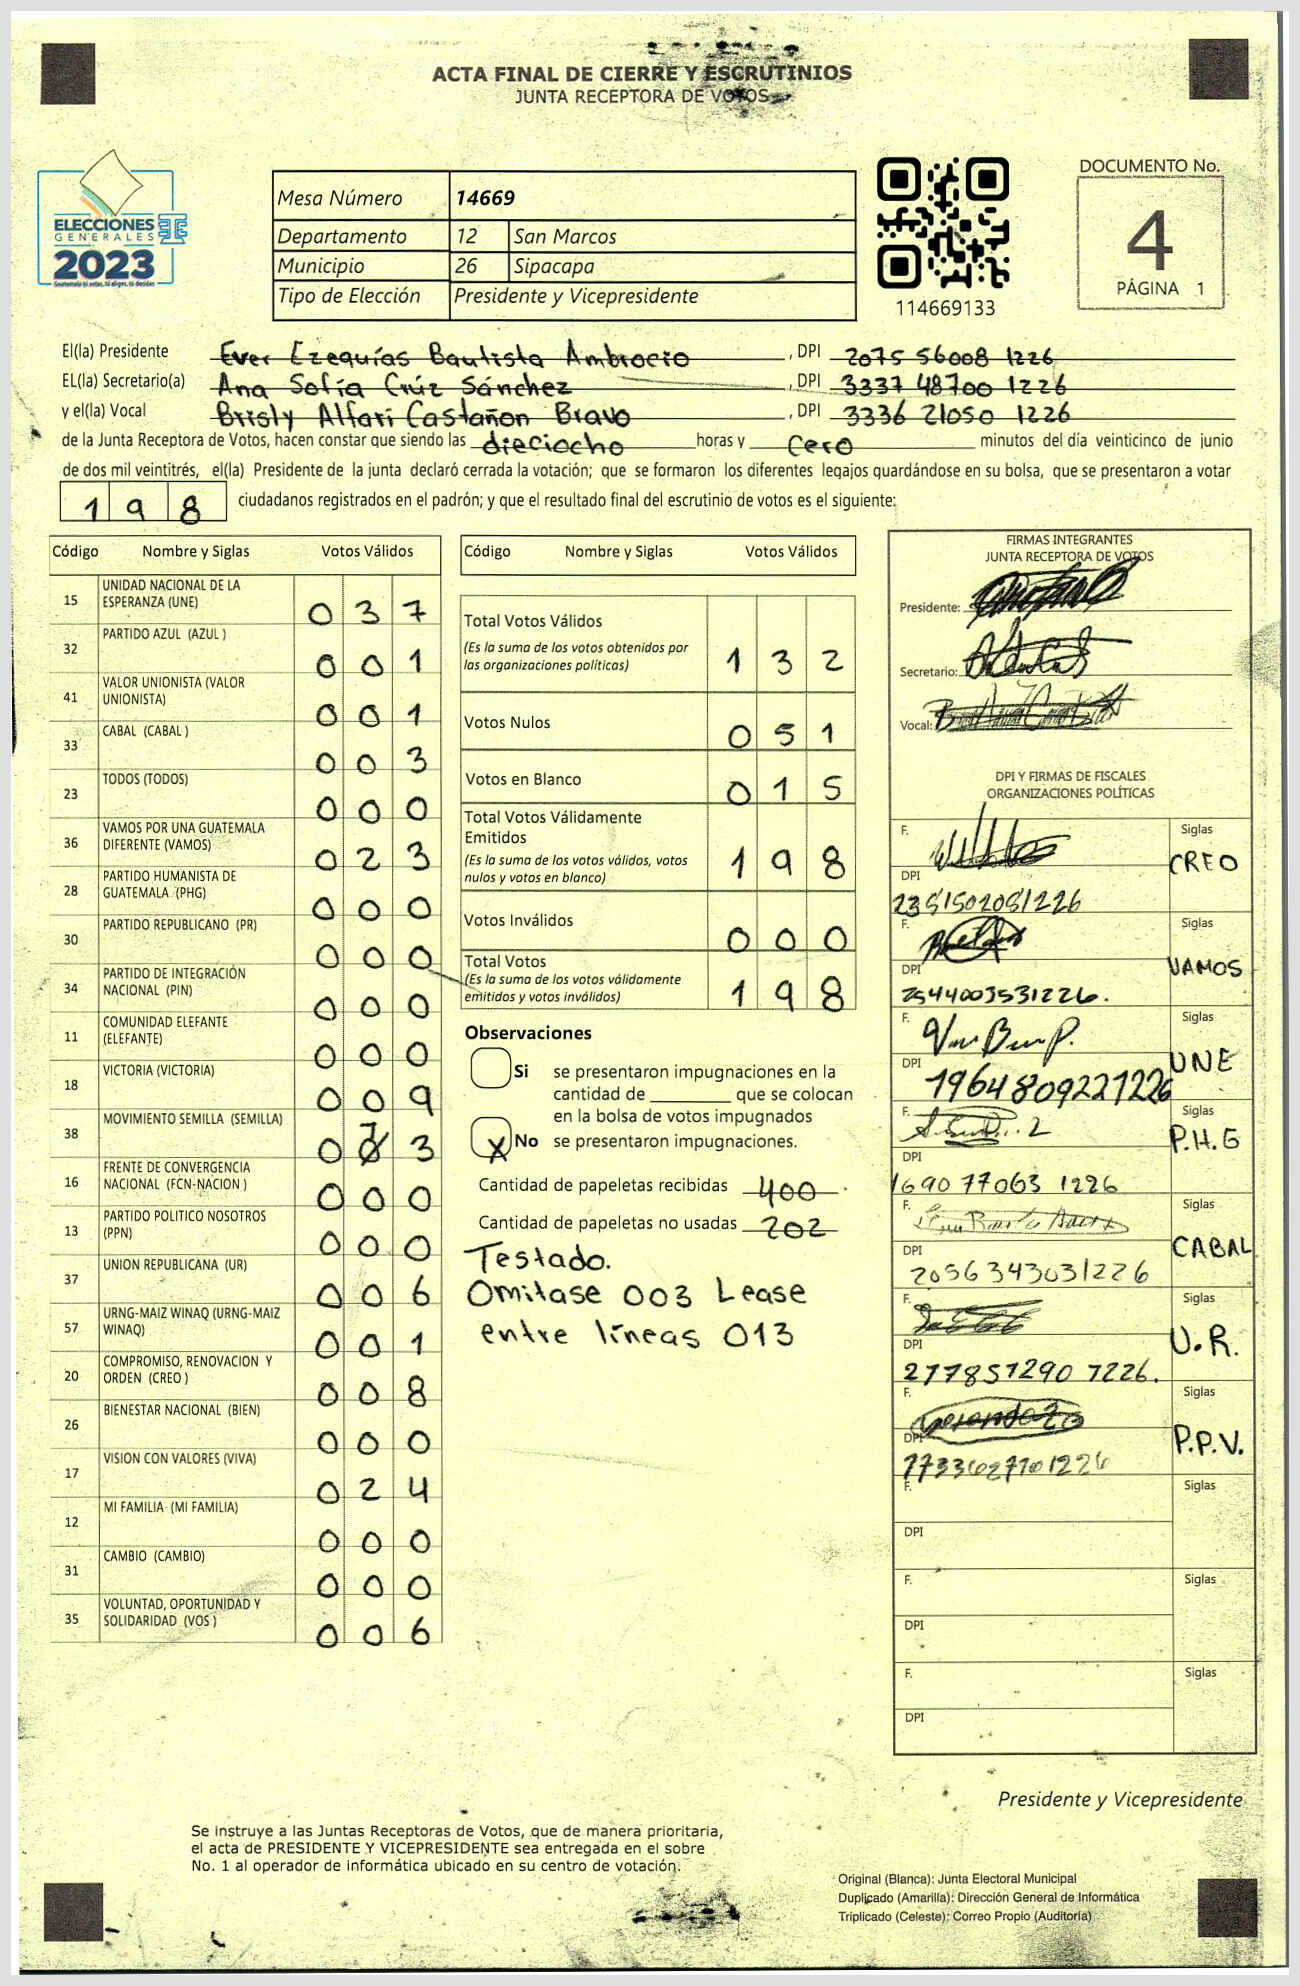 ACTA FINAL DE CIERRE Y ESCRUTINIOS
JUNTA RECEPTORA DE VOTOS
ELECCIONES
GENERALES
2023
Guatemala tú votas, tú eliges, tú decides
Mesa Número 14669
Departamento 12 San Marcos
Municipio 26 Sipacapa
Tipo de Elección Presidente y Vicepresidente
114669133
DOCUMENTO No.
4
PÁGINA 1
El(la) Presidente Ever Ezequías Bautista Ambrocio , DPI 2075 56008 1226
EL(la) Secretario(a) Ana Sofía Crúz Sánchez , DPI 3337 48700 1226
y el(la) Vocal Brisly Alfari Castañon Bravo , DPI 3336 21050 1226
de la Junta Receptora de Votos, hacen constar que siendo las dieciocho horas y cero minutos del día veinticinco de junio
de dos mil veintitrés, el(la) Presidente de la junta declaró cerrada la votación; que se formaron los diferentes legajos guardándose en su bolsa, que se presentaron a votar
198 ciudadanos registrados en el padrón; y que el resultado final del escrutinio de votos es el siguiente:
Código Nombre y Siglas Votos Válidos
15 UNIDAD NACIONAL DE LA ESPERANZA (UNE) 0 3 7
32 PARTIDO AZUL (AZUL ) 0 0 1
41 VALOR UNIONISTA (VALOR UNIONISTA) 0 0 1
33 CABAL (CABAL ) 0 0 3
23 TODOS (TODOS) 0 0 0
36 VAMOS POR UNA GUATEMALA DIFERENTE (VAMOS) 0 2 3
28 PARTIDO HUMANISTA DE GUATEMALA (PHG) 0 0 0
30 PARTIDO REPUBLICANO (PR) 0 0 0
34 PARTIDO DE INTEGRACIÓN NACIONAL (PIN) 0 0 0
11 COMUNIDAD ELEFANTE (ELEFANTE) 0 0 0
18 VICTORIA (VICTORIA) 0 0 9
38 MOVIMIENTO SEMILLA (SEMILLA) 0 1 3
16 FRENTE DE CONVERGENCIA NACIONAL (FCN-NACION ) 0 0 0
13 PARTIDO POLITICO NOSOTROS (PPN) 0 0 0
37 UNION REPUBLICANA (UR) 0 0 6
57 URNG-MAIZ WINAQ (URNG-MAIZ WINAQ) 0 0 1
20 COMPROMISO, RENOVACION Y ORDEN (CREO ) 0 0 8
26 BIENESTAR NACIONAL (BIEN) 0 0 0
17 VISION CON VALORES (VIVA) 0 2 4
12 MI FAMILIA (MI FAMILIA) 0 0 0
31 CAMBIO (CAMBIO) 0 0 0
35 VOLUNTAD, OPORTUNIDAD Y SOLIDARIDAD (VOS ) 0 0 6
Código Nombre y Siglas Votos Válidos
Total Votos Válidos
(Es la suma de los votos obtenidos por
las organizaciones políticas) 1 3 2
Votos Nulos 0 5 1
Votos en Blanco 0 1 5
Total Votos Válidamente
Emitidos
(Es la suma de los votos válidos, votos
nulos y votos en blanco) 1 9 8
Votos Inválidos 0 0 0
Total Votos
(Es la suma de los votos válidamente
emitidos y votos inválidos) 1 9 8
Observaciones
Si se presentaron impugnaciones en la
cantidad de ________ que se colocan
en la bolsa de votos impugnados
X No se presentaron impugnaciones.
Cantidad de papeletas recibidas 400
Cantidad de papeletas no usadas 202
Testado.
Omitase 003 Lease
entre líneas 013
FIRMAS INTEGRANTES
JUNTA RECEPTORA DE VOTOS
Presidente:
Secretario:
Vocal:
DPI Y FIRMAS DE FISCALES
ORGANIZACIONES POLÍTICAS
F. Siglas
CREO
DPI
2351502051226
F. Siglas
VAMOS
DPI
2544003531226.
F. Siglas
UNE
DPI
1964809221226
F. Siglas
P.H.G
DPI
1690 77063 1226
F. Siglas
CABAL
DPI
2056343031226
F. Siglas
U.R.
DPI
277857290 7226.
F. Siglas
P.P.V.
DPI
F. Siglas
DPI
F. Siglas
DPI
F. Siglas
DPI
Presidente y Vicepresidente
Se instruye a las Juntas Receptoras de Votos, que de manera prioritaria,
el acta de PRESIDENTE Y VICEPRESIDENTE sea entregada en el sobre
No. 1 al operador de informática ubicado en su centro de votación.
Original (Blanca): Junta Electoral Municipal
Duplicado (Amarilla): Dirección General de Informática
Triplicado (Celeste): Correo Propio (Auditoría)